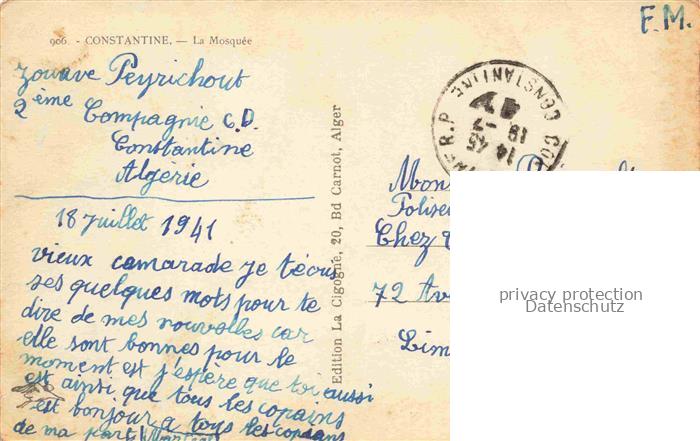 906. - CONSTANTINE. — La Mosquée
F.M.
Zouave Peyrichout
2ème Compagnie C.D.
Constantine
Algérie
18 juillet 1941
vieux camarade je técris
ses quelques mots pour te
dire de mes nouvelles car
elle sont bonnes pour le
moment est j'espère que toi, aussi
est ainsi que tous les copains
est bonjour a tous les copains
de ma part
Edition La Cigogne, 20, Bd Carnot, Alger
CONSTANTINE R.P
14-45
18-7
41
Chez
72 Av
Lim
privacy protection
Datenschutz